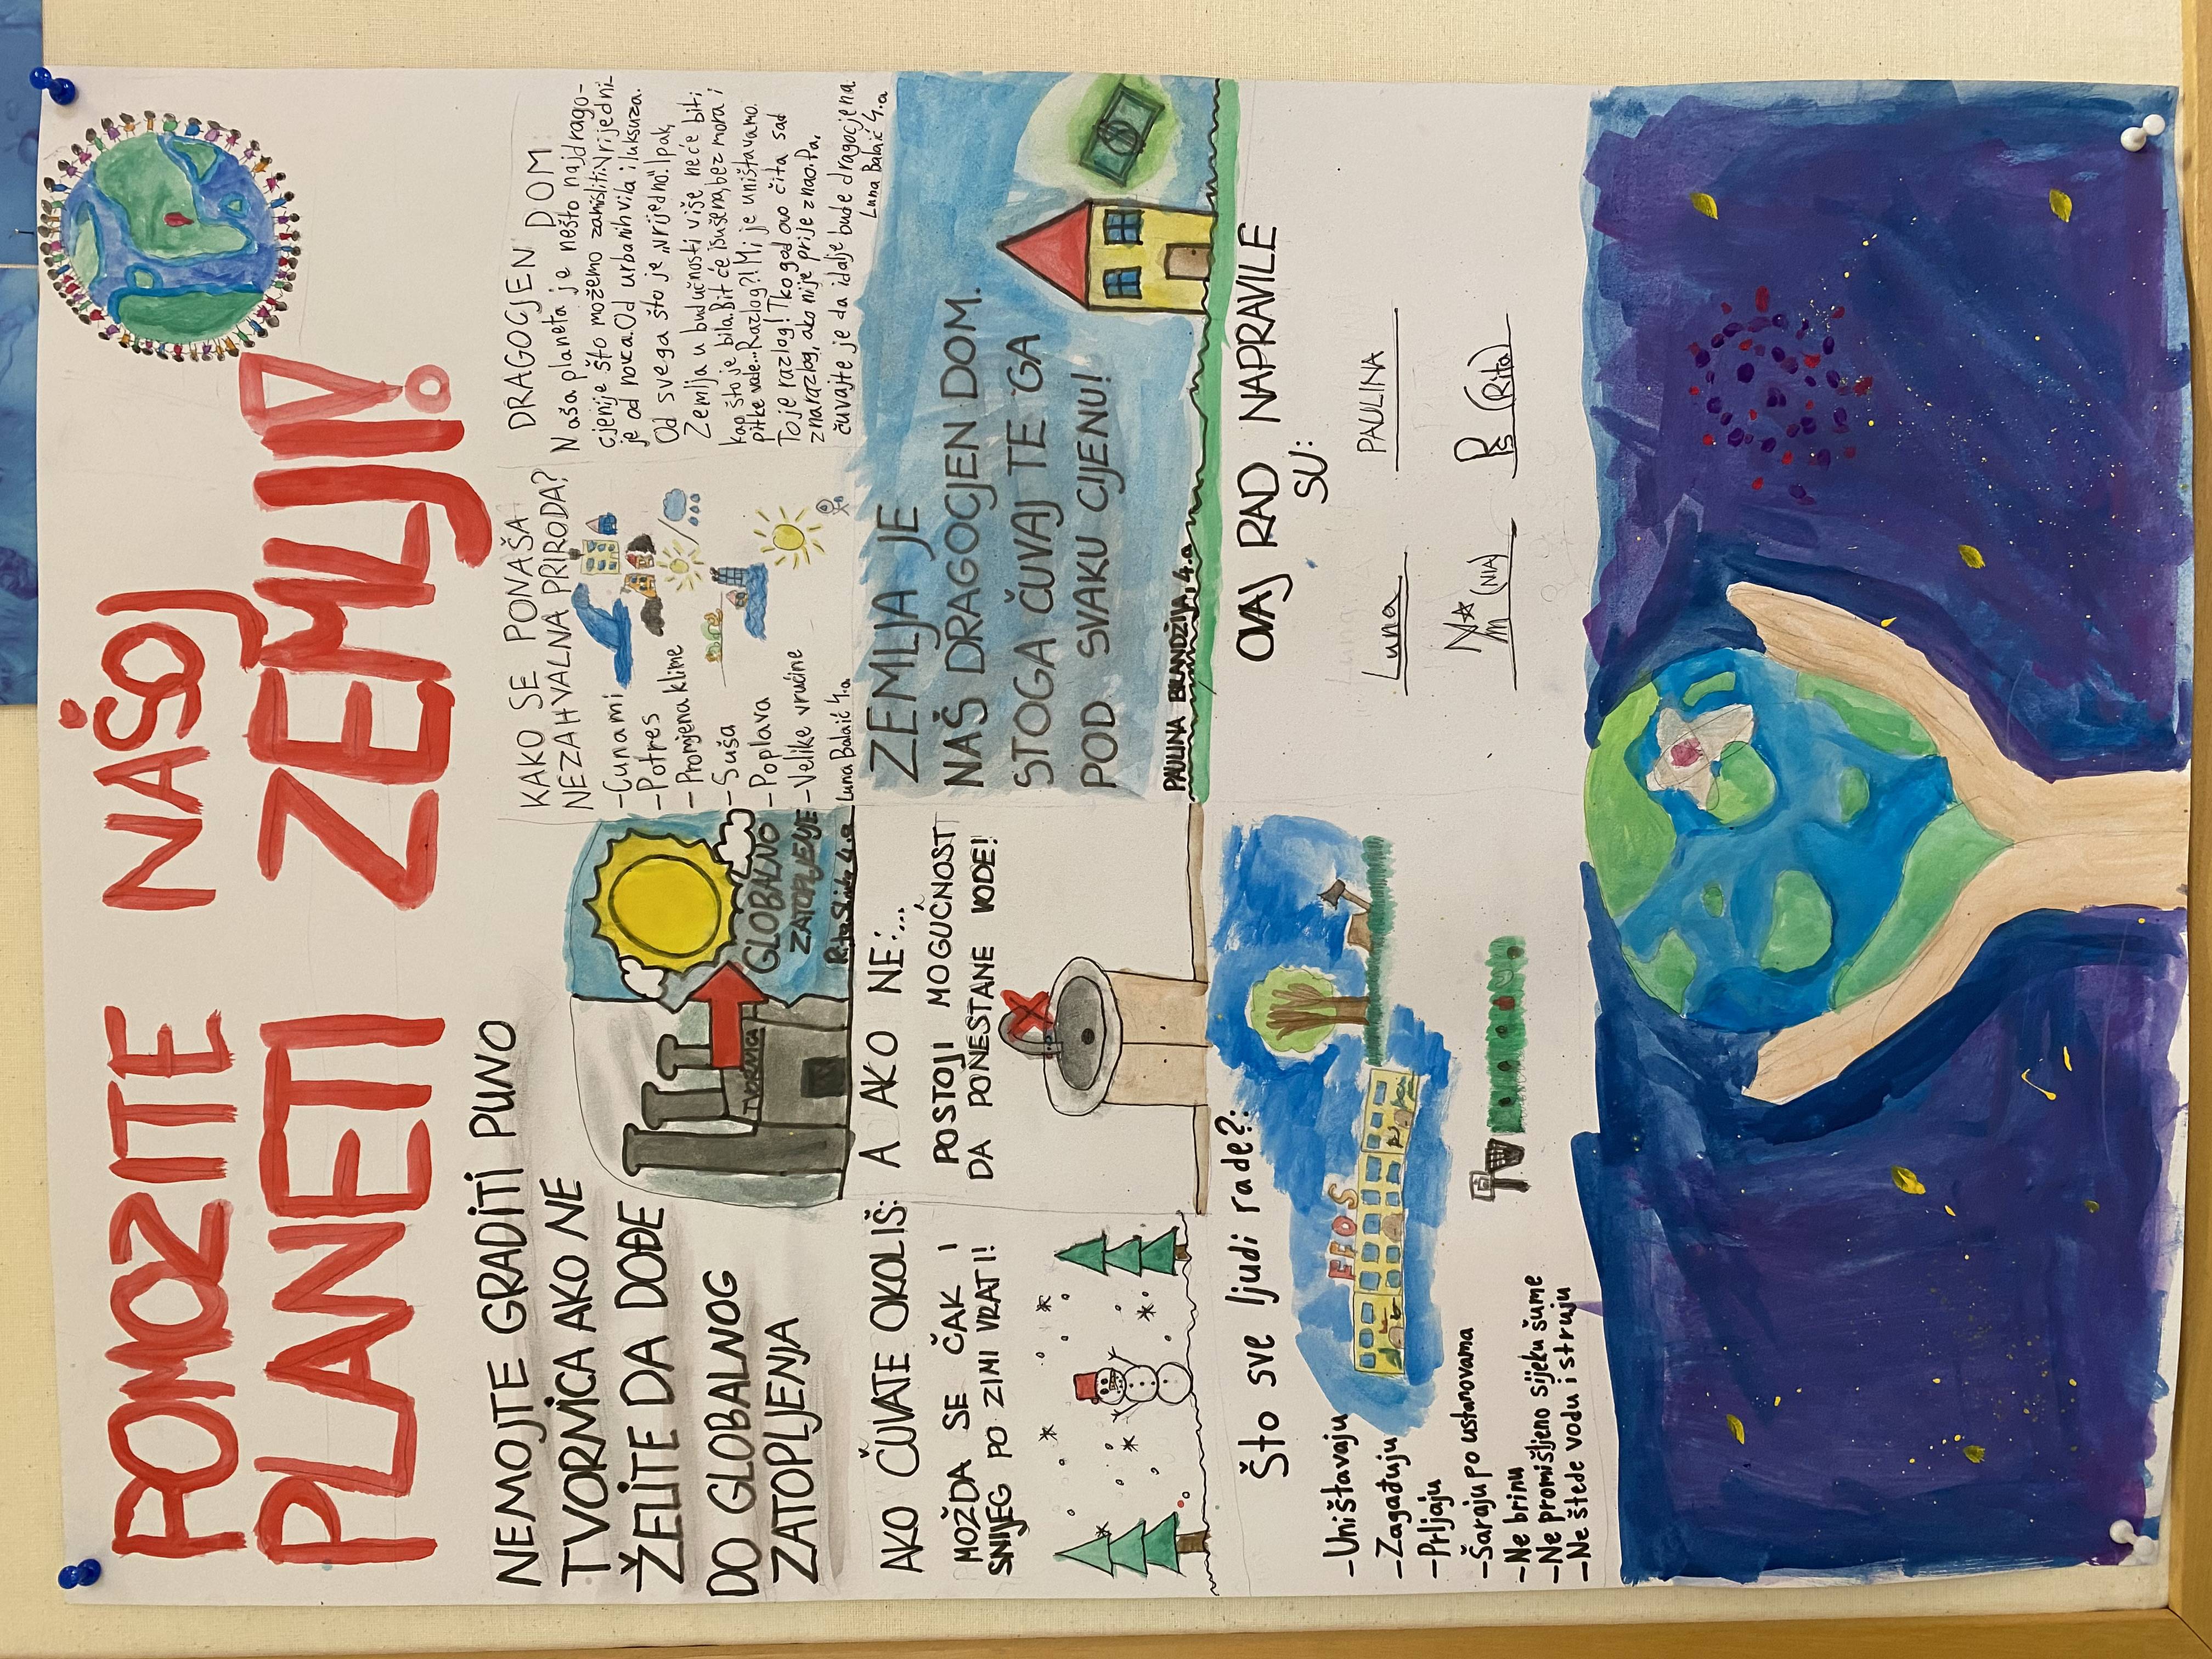 POMOZITE NAŠOJ
PLANETI ZEMLJI!
NEMOJTE GRADITI PUNO
TVORNICA AKO NE
ŽELITE DA DOĐE
DO GLOBALNOG
ZATOPLJENJA
TVORNICA
GLOBALNO
ZATOPLJENJE
Rita Skoko 4.a
KAKO SE PONAŠA
NEZAHVALNA PRIRODA?
-Cunami
-Potres
-Promjena klime
-Suša
-Poplava
-Velike vrućine
Luna Balaić 4.a
DRAGOCJEN DOM
Naša planeta je nešto najdrago-
cjenije što možemo zamisliti. Vrijedni-
je od novca. Od urbanih vila i luksuza.
Od svega što je „vrijedno". Ipak,
Zemlja u budućnosti više neće biti
kao što je bila. Bit će isušena, bez mora i
pitke vode... Razlog?! Mi je uništavamo.
To je razlog! Tko god ovo čita sad
zna razlog, ako nije prije znao. Pa,
čuvajte je da i dalje bude dragocjena.
Luna Balaić 4.a
AKO ČUVATE OKOLIŠ:
MOŽDA SE ČAK I
SNIJEG PO ZIMI VRATI!
A AKO NE:...
POSTOJI MOGUĆNOST
DA PONESTANE VODE!
ZEMLJA JE
NAŠ DRAGOCJEN DOM.
STOGA ČUVAJTE GA
POD SVAKU CIJENU!
PAULINA BILANDŽIJA, 4.a
Što sve ljudi rade?:
FFOS
-Uništavaju
-Zagađuju
-Prljaju
-Šaraju po ustanovama
-Ne brinu
-Ne promišljeno sijeku šume
-Ne štede vodu i struju
OVAJ RAD NAPRAVILE
SU:
Luna
PAULINA
(NIA)
(Rita)